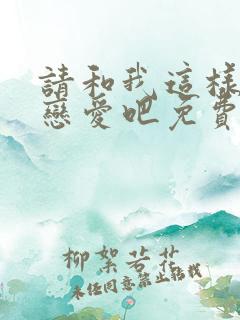 請和我這樣
戀愛吧免費
柳絮若花
未经同意禁止转载